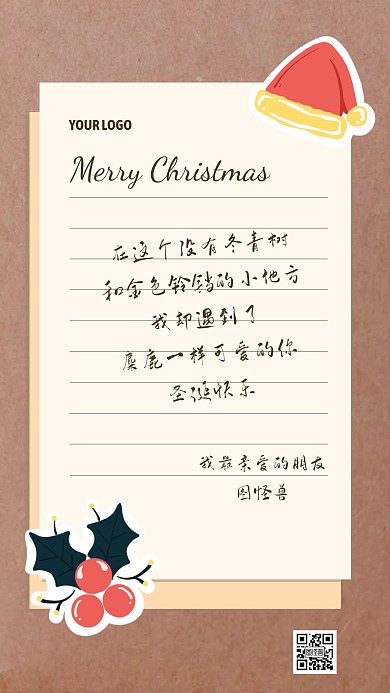 YOUR LOGO
Merry Christmas
在这个没有冬青树
和金色铃铛的小地方
我却遇到了
麋鹿一样可爱的你
圣诞快乐
我最亲爱的朋友
图怪兽
图怪兽